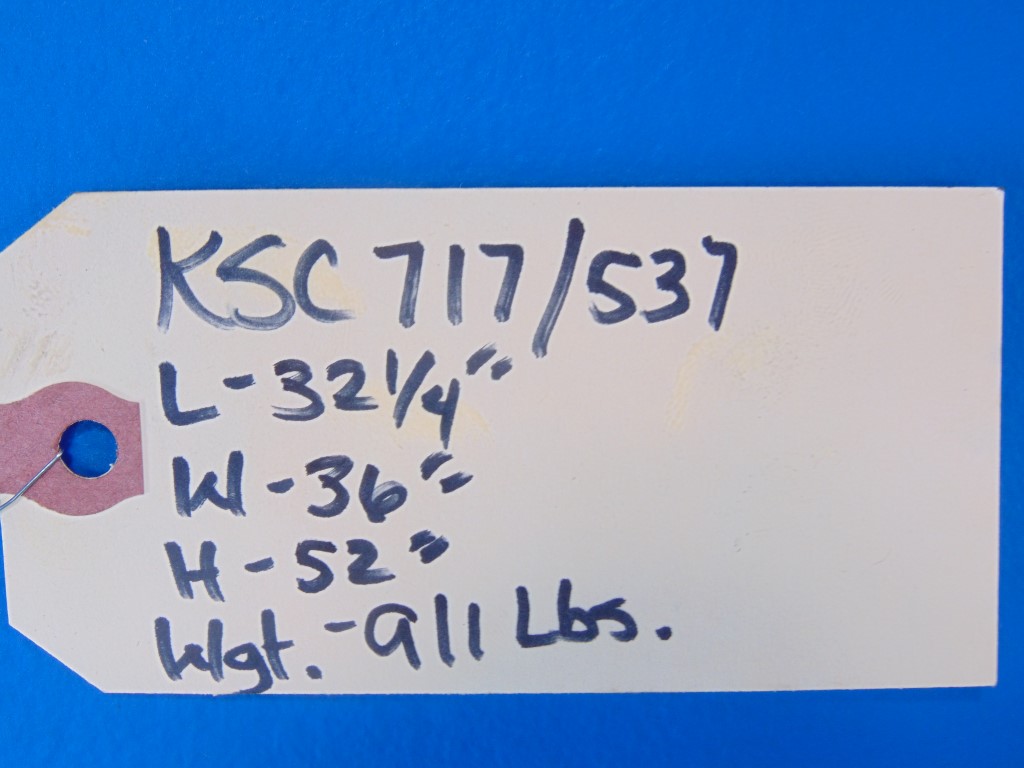 KSC 717/537
L-32 1/4"
W-36"
H-52"
Wgt.-911 Lbs.